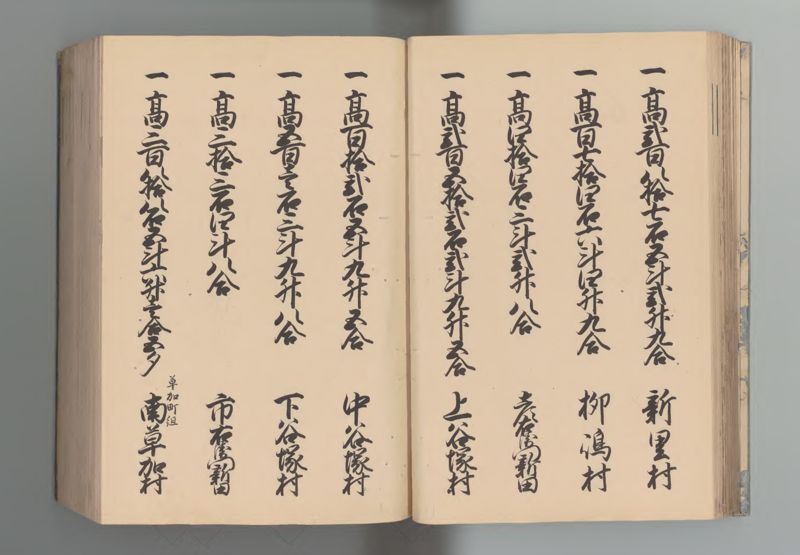 一高弐百八拾七石五斗弐升九合 新里村
一高百七拾四石六斗四升九合 柳嶋村
一高四拾四石三斗弐升八合 吉右衛門新田
一高弐百五拾弐石弐斗九升五合 上谷塚村
一高百拾弐石五斗九升五合 中谷塚村
一高五百壱石三斗九升八合 下谷塚村
一高三拾三石四斗八合 市右衛門新田
一高三百八拾八石五斗六升壱合五夕 草加町組 南草加村